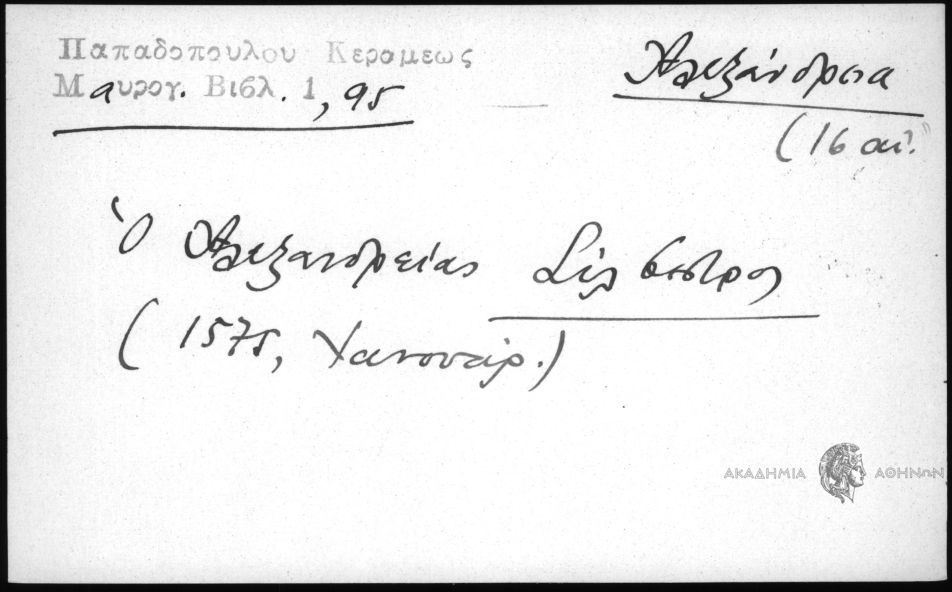 Παπαδοπουλου Κεραμεως
Μαυρογ. Βιβλ. 1, 95
Ἀλεξάνδρεια
(16 αἰ.
Ὁ Ἀλεξανδρείας Σίλβεστρος
(1575, Ἰανουάρ.)
ΑΚΑΔΗΜΙΑ ΑΘΗΝΩΝ